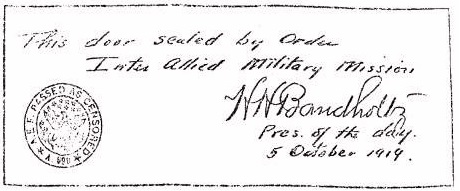 This door sealed by Order
Inter Allied Military Mission
HHBandholtz
Pres. of the day.
5 October 1919.
A.E.F. PASSED AS CENSORED